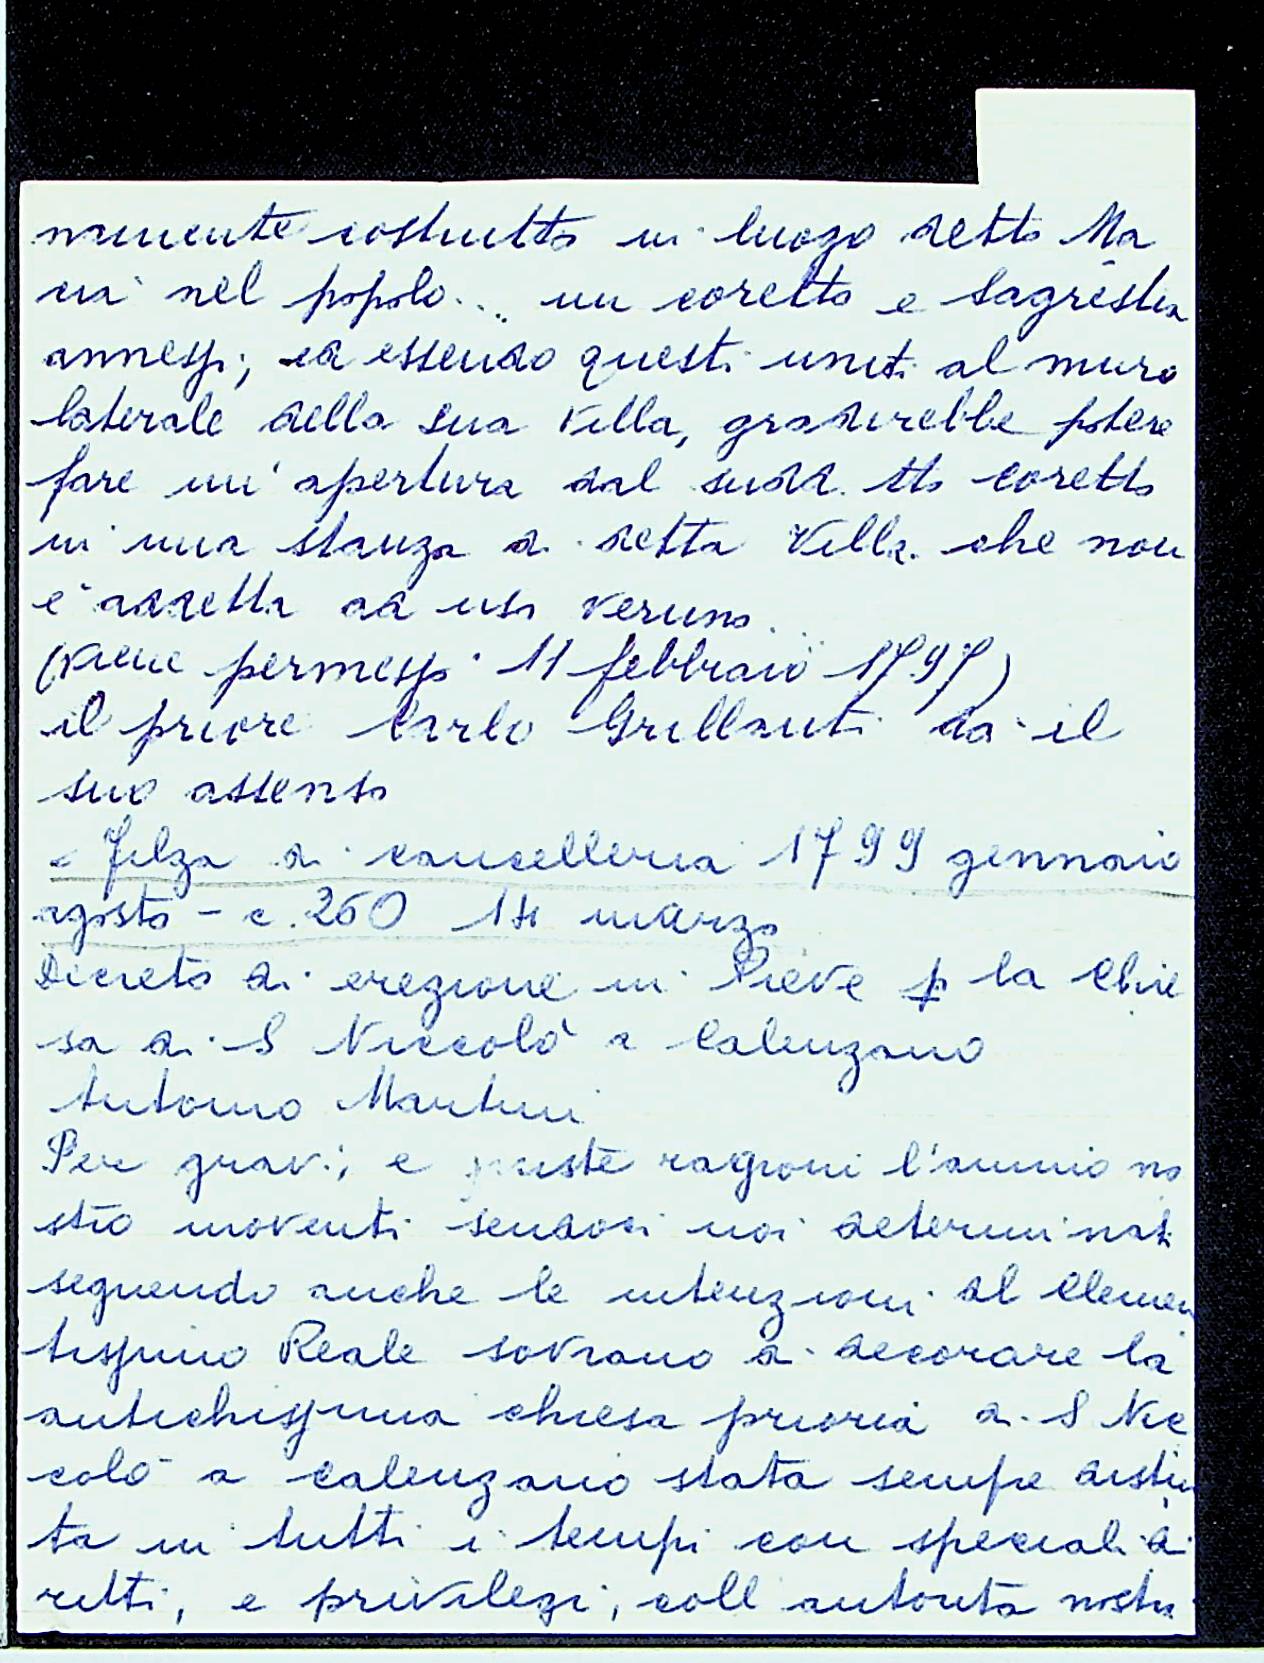 namente costrutto in luogo detto Ma
cia nel popolo... un coretto e Sagrestia
annessi; ed essendo questi uniti al muro
laterale della sua Villa, gradirebbe potere
fare un'apertura dal sudd.tto coretto
in una stanza di detta Villa che non
è addetta ad uso veruno.
(viene permesso 11 febbraio 1797)
il priore Carlo Grillanti da il
suo assenso
= Filza di cancelleria 1799 gennaio
agosto - c. 260 14 marzo
Decreto di erezione in Pieve p la Chie
sa di S Niccolò a Calenzano
Antonio Martini
Per gravi, e giuste ragioni l'animo no
stro moventi sendosi noi determinati
seguendo anche le intenzioni del Clemen
tissimo Reale sovrano di decorare la
antichissima chiesa prioria di S Nic
colò a Calenzano stata sempre distin
ta in tutti i tempi con speciali di
ritti, e privilegi, coll autorità nostra